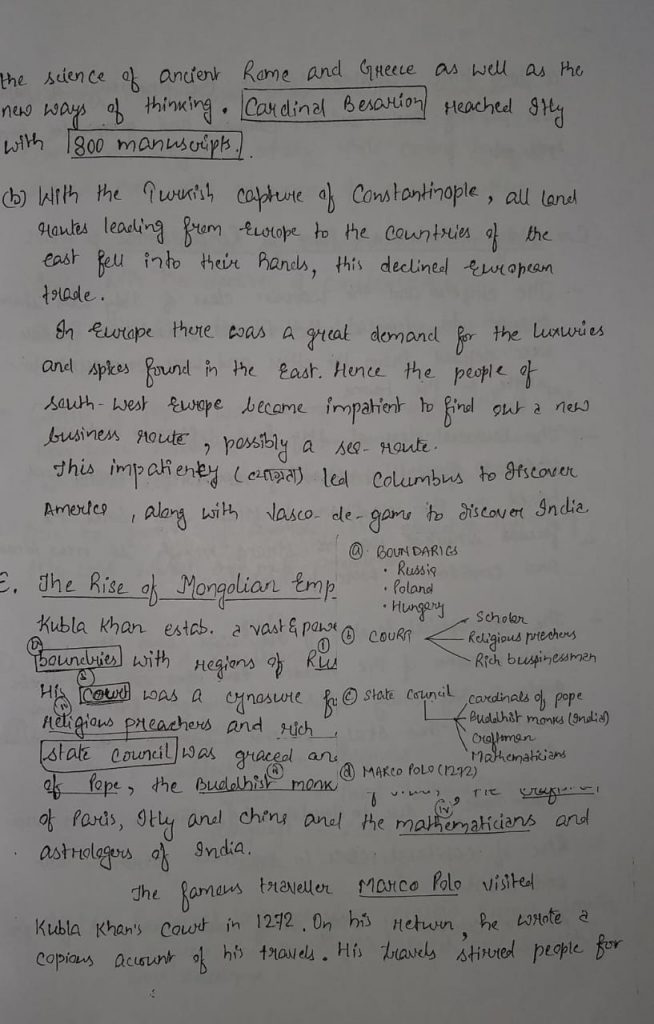 the science of ancient Rome and Greece as well as the
new ways of thinking. Cardinal Besarion reached Itly
with 800 manuscripts.
(b) With the Turkish capture of Constantinople, all land
routes leading from Europe to the countries of the
east fell into their hands, this declined European
trade.
In Europe there was a great demand for the luxuries
and spices found in the East. Hence the people of
south-west Europe became impatient to find out a new
business route, possibly a sea-route.
This impatienty (व्याग्रता) led Columbus to discover
America, along with Vasco-de-gama to discover India
E. The Rise of Mongolian Emp
Kubla Khan estab. a vast & powe
boundries with regions of Rus
His court was a cynosure fo
religious preachers and rich
state council was graced an
of Pope, the Buddhist monk
of Paris, Itly and china and the mathematicians and
astrologers of India.
The famous traveller Marco Polo visited
Kubla Khan's court in 1272. On his return, he wrote a
copious account of his travels. His travels stirred people for
(a) BOUNDARIES
• Russia
• Poland
• Hungary
(b) COURT
Scholar
Religious preachers
Rich buspinessmen
(c) State Council
cardinals of pope
Buddhist monks (India)
Craftsman
Mathematicians
(d) MARCO POLO (1272)